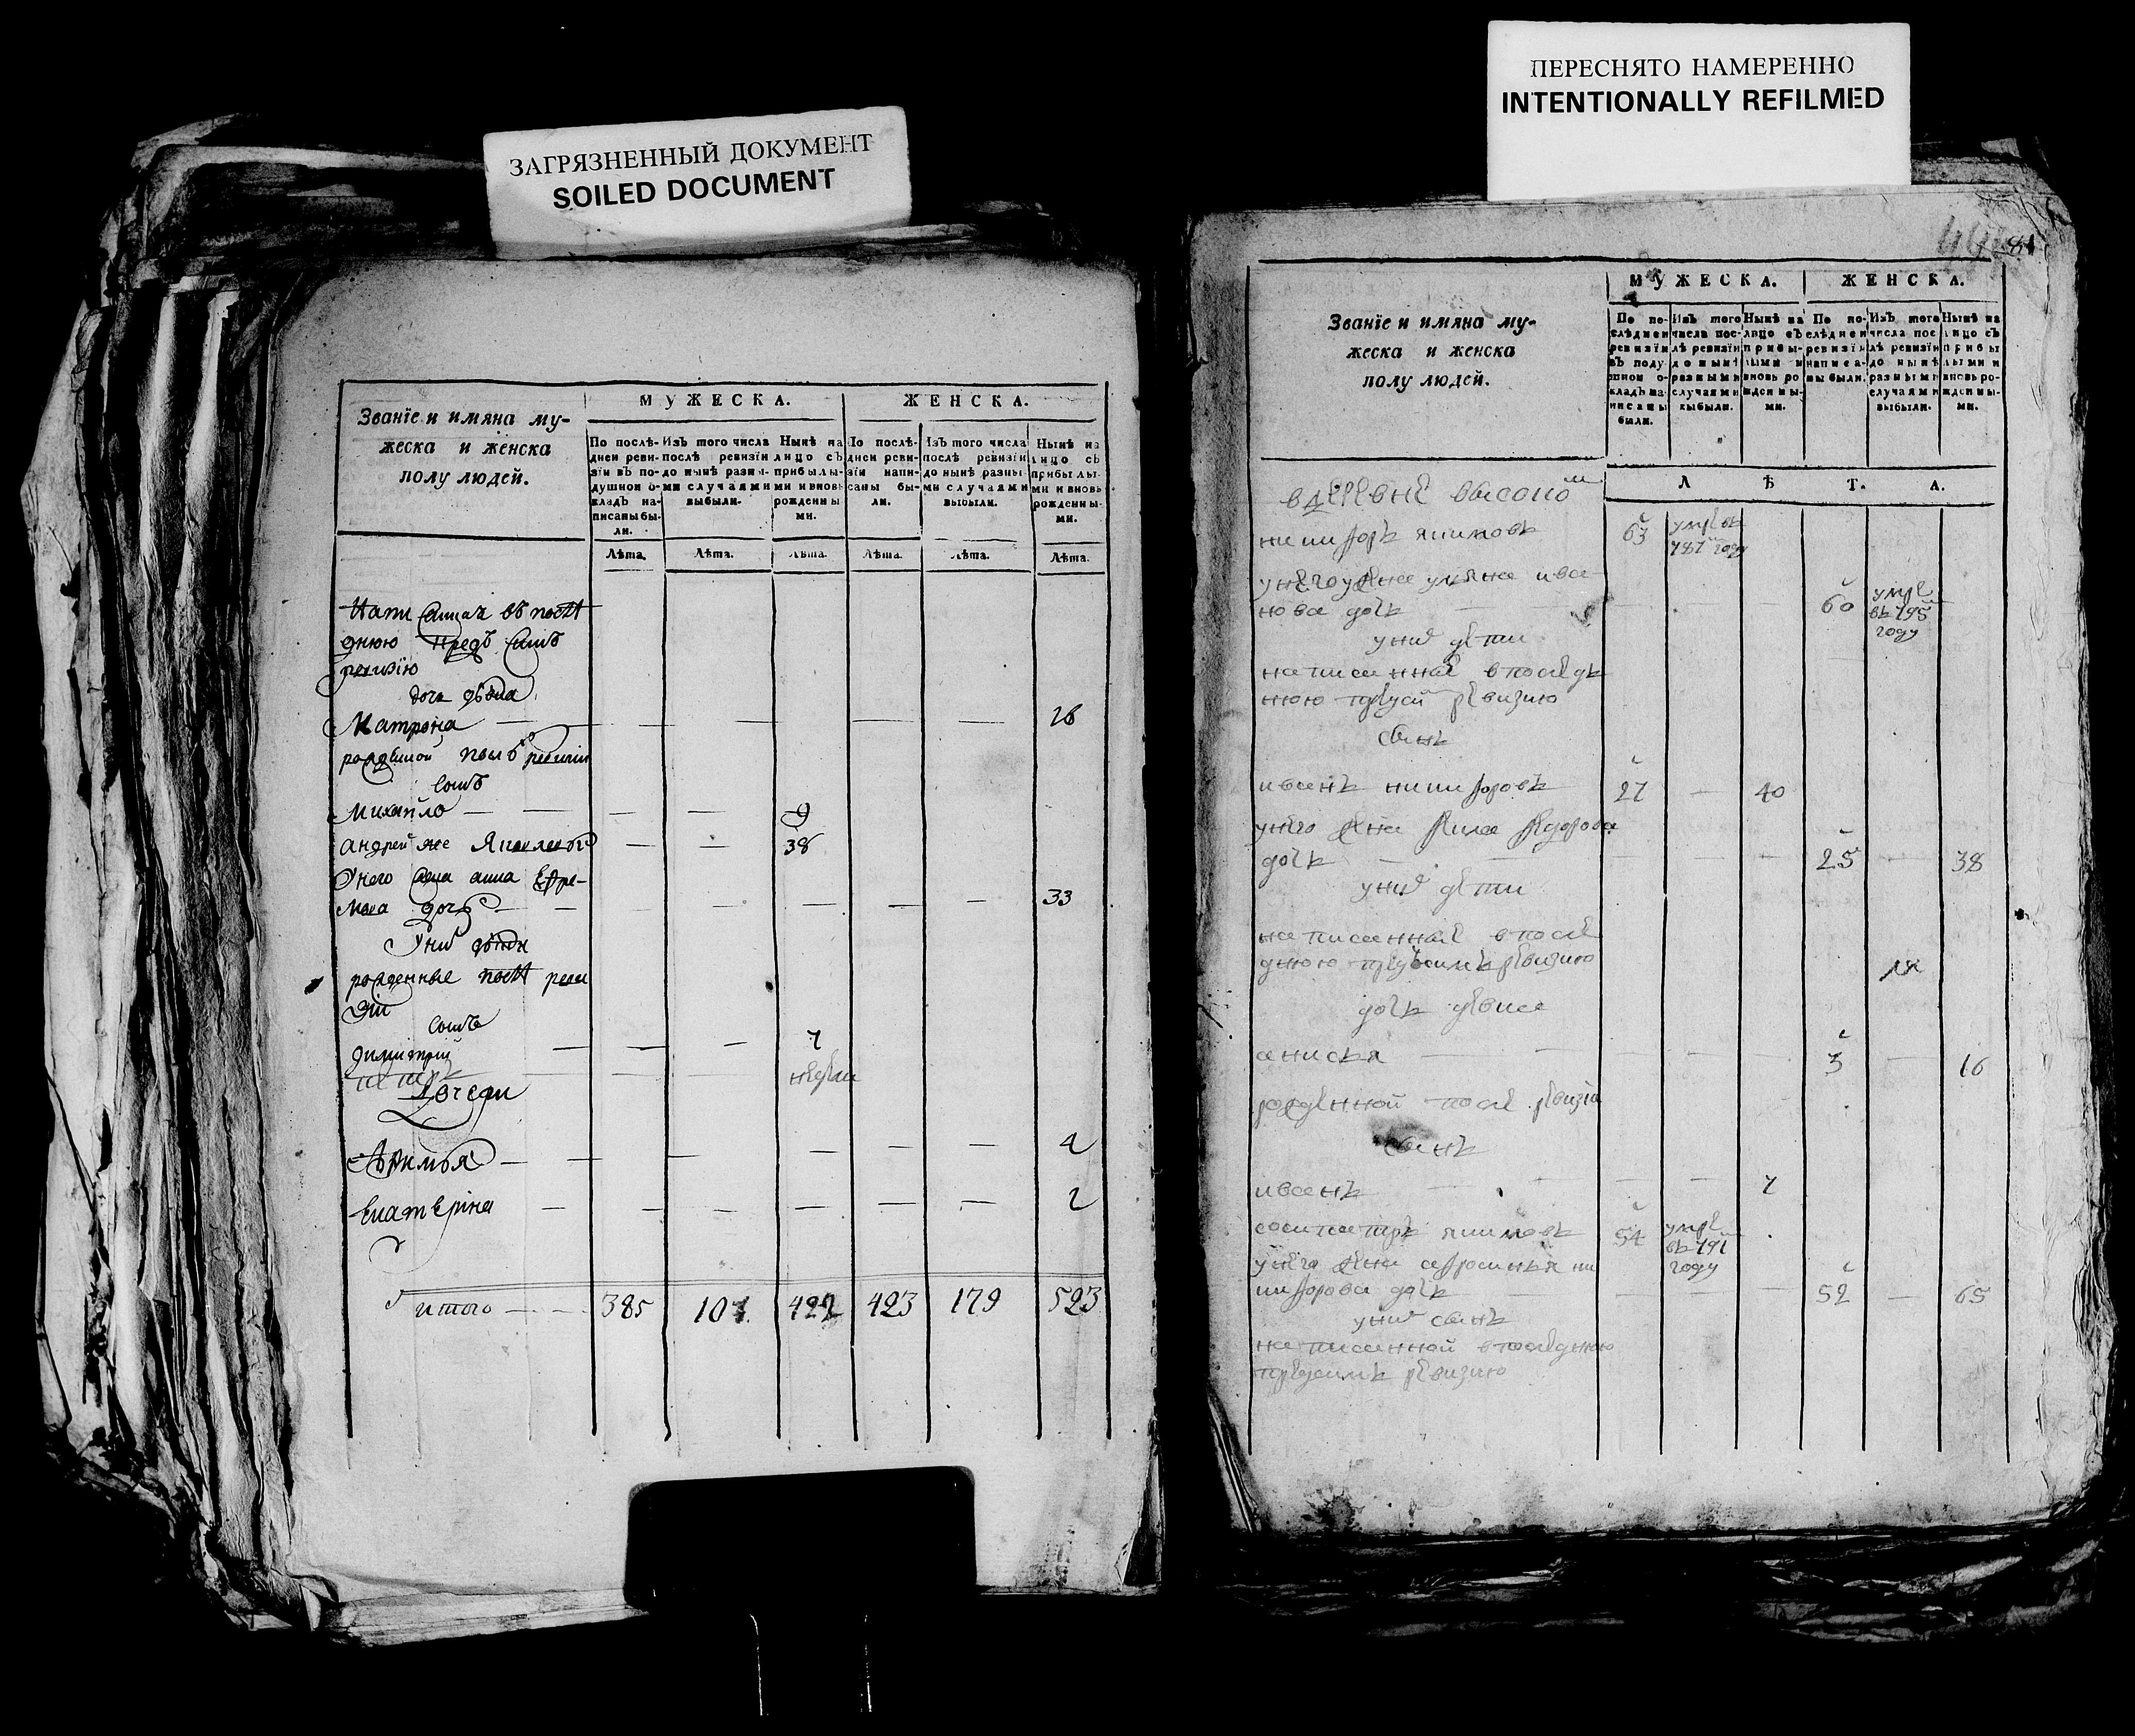 ЗАГРЯЗНЕННЫЙ ДОКУМЕНТ
SOILED DOCUMENT
Званїе и имяна му-
жеска и женска
полу людей.
МУЖЕСКА.
ЖЕНСКА.
По послѣ-
дней реви-
зїи въ по-
душной о-
кладъ на-
писаны бы-
ли.
Изъ того числа
послѣ ревизїи
до нынѣ разны-
ми случаями
выбыли.
Нынѣ на
лицо съ
прибылы-
ми и вновь
рожденны
ми.
По послѣ-
дней реви-
зїи напи-
саны бы-
ли.
Изъ того числа
послѣ ревизїи
до нынѣ разны
ми случаями
выбыли.
Нынѣ на
лицо съ
прибылы-
ми и вновь
рожденны-
ми.
Лѣта. Лѣта. Лѣта. Лѣта. Лѣта. Лѣта.
днюю предъ симъ
ревизїю
дочь
Матрона — — — — — 16
послѣ ревизіи
сынъ
Михайло — — — 9
Андрей же — — 38
Унего жена анна Ефре-
мова дочь — — — — — 33
Уних дѣти
рожденные послѣ реви
зіи
сынъ
димитрий — — — 7
петръ — — недели
Дочери
— — — — — 4
Екатерина — — — — — 2
итого — 385 107 422 423 179 523
ПЕРЕСНЯТО НАМЕРЕННО
INTENTIONALLY REFILMED
81
Званїе и имяна му-
жеска и женска
полу людей.
МУЖЕСКА.
ЖЕНСКА.
По по-
слѣдней
ревизїи
въ поду
шной о-
кладъ на-
писаны
были.
Изъ того
числа пос-
лѣ ревизїи
до нынѣ
разными
случаями
выбыли.
Нынѣ на
лицо съ
прибы-
лыми и
вновь ро
жденны-
ми.
По по-
слѣдней
ревизїи
написа-
ны были.
Изъ того
числа пос
лѣ ревизїи
до нынѣ
разными
случаями
выбыли.
Нынѣ на
лицо съ
прибы
лыми и
вновь ро-
жденны-
ми.
Л Ѣ Т. А.
вдеревне высокой
никифоръ якимовъ 63 умре въ
787 году
унего жена уляна ива
нова дочь — — — 60 умре
въ 795
году
уних дети
написанные впослед
нюю ревизию
сынъ
иванъ никифоровъ 27 — 40
унего жена федорова
дочь — — — 25 — 38
уних дети
написанные впосле
днюю предсимъ ревизию
дочь девка
анисья — — — 3 — 16
рожденной после ревизіи
сынъ
иванъ — — 7
сосипатръ якимовъ 54 умре
въ 791
году
унего жена афросинья ни
кифорова дочь — — — 52 — 65
уних сынъ
написанной впоследнюю
предсимъ ревизию